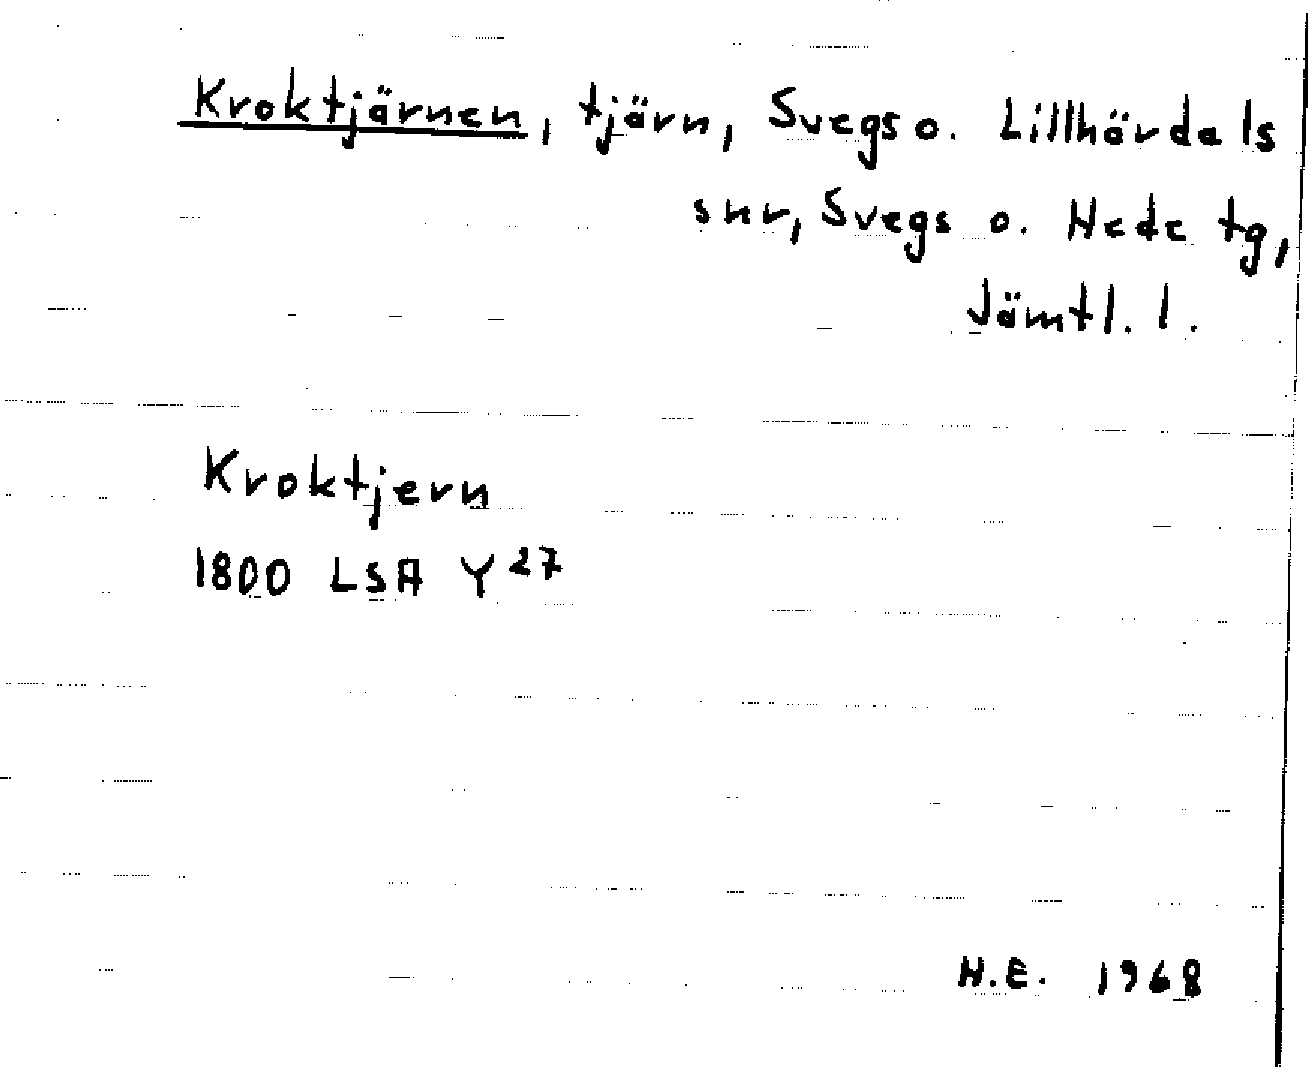 Kroktjärnen, tjärn, Svegs o. Lillhärdals
snr, Svegs o. Hede tg,
Jämtl. l.
Kroktjern
1800 LSA Y27
H.E. 1968